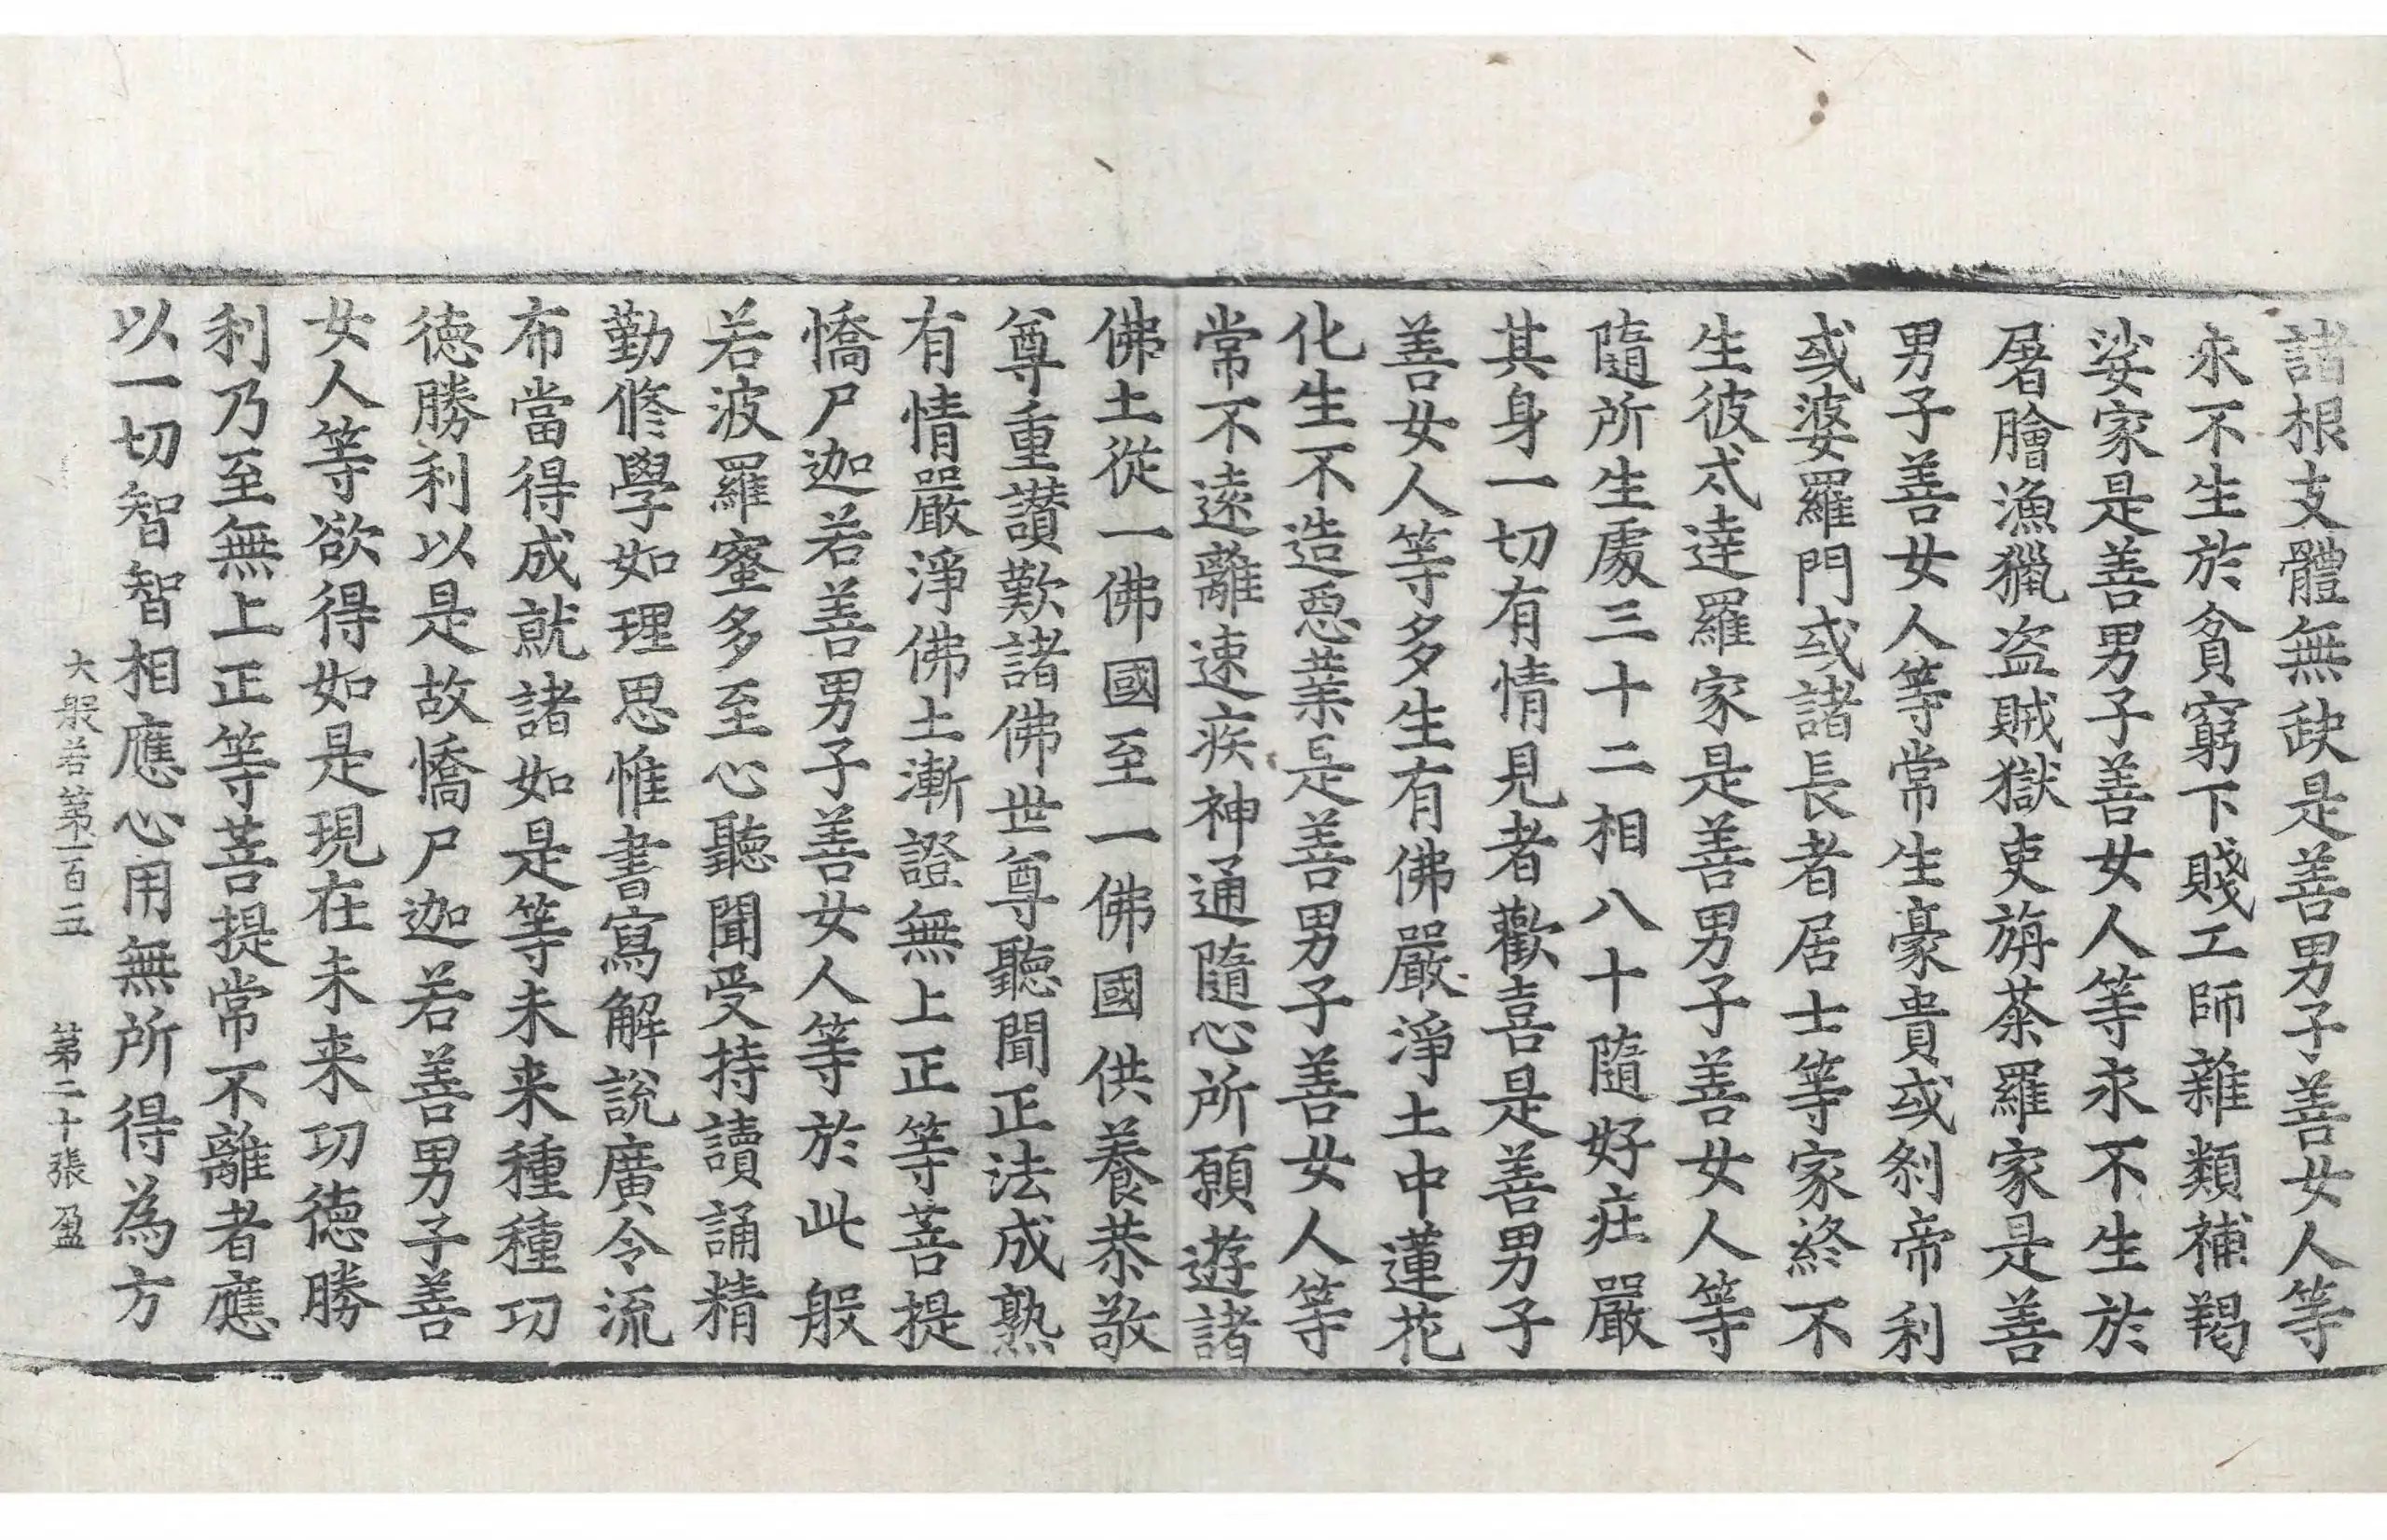 諸根支體無缺是善男子善女人等
永不生於貧窮下賤工師雜類補羯
娑家是善男子善女人等永不生於
屠膾漁獵盜賊獄吏旃荼羅家是善
男子善女人等常生豪貴或剎帝利
或婆羅門或諸長者居士等家終不
生彼戍達羅家是善男子善女人等
隨所生處三十二相八十隨好莊嚴
其身一切有情見者歡喜是善男子
善女人等多生有佛嚴淨土中蓮花
化生不造惡業是善男子善女人等
常不遠離速疾神通隨心所願遊諸
佛土從一佛國至一佛國供養恭敬
尊重讚歎諸佛世尊聽聞正法成熟
有情嚴淨佛土漸證無上正等菩提
憍尸迦若善男子善女人等於此般
若波羅蜜多至心聽聞受持讀誦精
勤修學如理思惟書寫解說廣令流
布當得成就諸如是等未来種種功
德勝利以是故憍尸迦若善男子善
女人等欲得如是現在未来功德勝
利乃至無上正等菩提常不離者應
以一切智智相應心用無所得為方
大般若第一百三 第二十張 盈